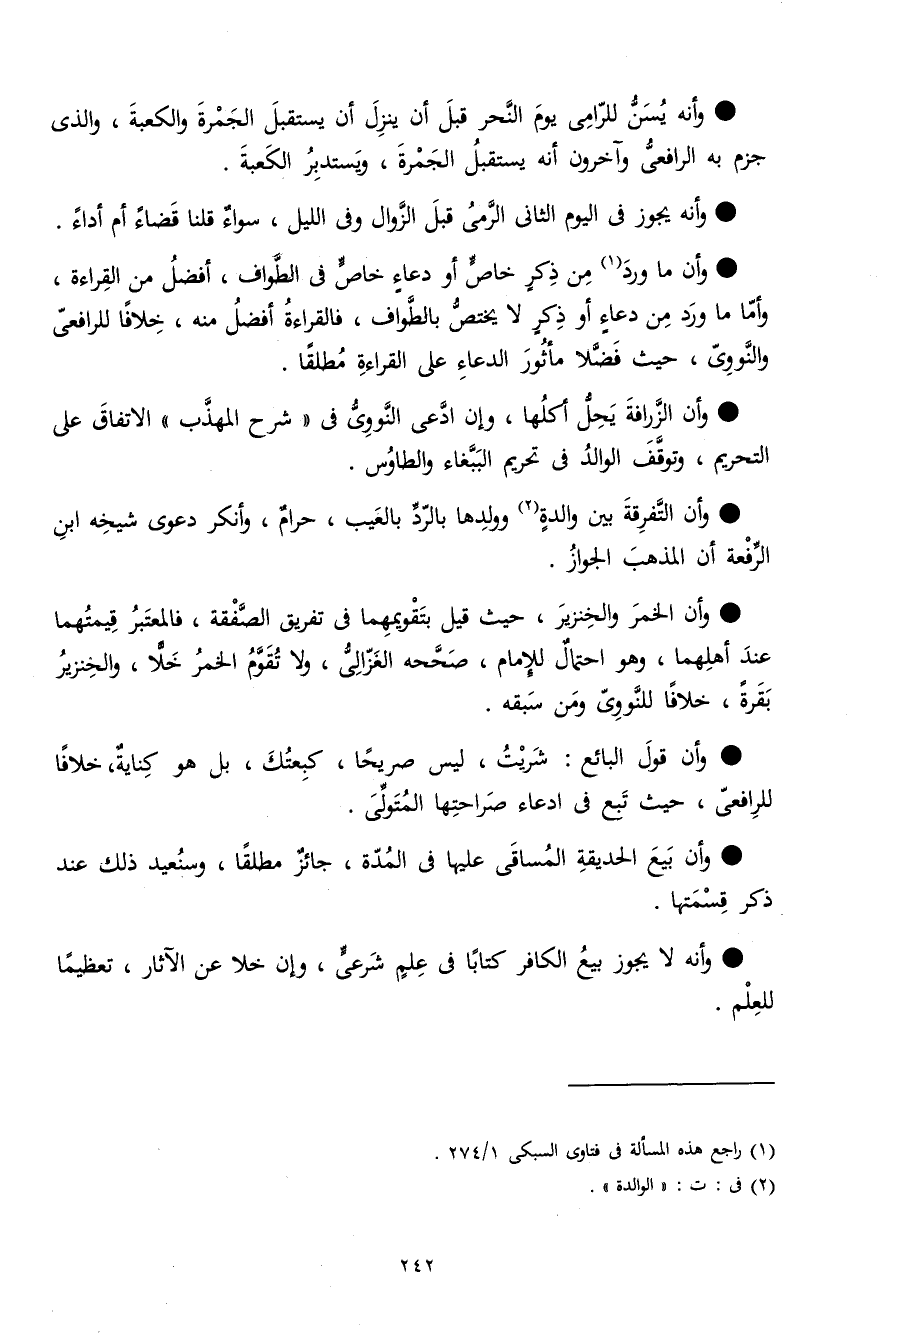 ● وأنه يُسَنُّ للرّامِى يومَ النَّحر قبلَ أن ينزِلَ أن يستقبلَ الجَمْرةَ والكعبةَ ، والذى
جزم به الرافعىُّ وآخرون أنه يستقبلُ الجَمْرةَ ، ويَستدبِرُ الكَعبةَ .
● وأنه يجوز فى اليوم الثانى الرَّمىُ قبلَ الزَّوال وفى الليل ، سواءٌ قلنا قَضاءً أم أداءً .
● وأن ما وردَ(١) مِن ذِكرٍ خاصٍّ أو دعاءٍ خاصٍّ فى الطَّواف ، أفضلُ من القِراءة ،
وأمّا ما ورَد مِن دعاءٍ أو ذِكرٍ لا يختصُّ بالطَّواف ، فالقراءةُ أفضلُ منه ، خِلافًا للرافعىّ
والنَّووِىّ ، حيث فَضَّلا مأثُورَ الدعاءِ على القراءةِ مُطلقًا .
● وأن الزَّرافةَ يَحِلُّ أكلُها ، وإن ادَّعى النَّووِىُّ فى « شرح المهذَّب » الاتفاقَ على
التحريم ، وتوقَّفَ الوالدُ فى تحريم البَبَّغاء والطاوُس .
● وأن التَّفرِقةَ بين والدةٍ(٢) وولدِها بالرّدِّ بالعَيب ، حرامٌ ، وأنكر دعوى شيخِه ابنِ
الرِّفْعة أن المذهبَ الجوازُ .
● وأن الخمرَ والخِنزيرَ ، حيث قيل بتَقْويمِهما فى تفريق الصَّفْقة ، فالمعتَبرُ قِيمتُهما
عندَ أهلِهما ، وهو احتمالٌ للإِمام ، صَحَّحه الغَزّالِىُّ ، ولا تُقَوَّمُ الخمرُ خَلًّا ، والخِنزيرُ
بَقَرةً ، خلافًا للنَّووِىّ ومَن سَبقه .
● وأن قولَ البائع : شَرَيْتُ ، ليس صريحًا ، كبِعتُكَ ، بل هو كِنايةٌ، خلافًا
للرافعىّ ، حيث تَبِع فى ادعاء صَراحتِها المُتَولِّىَ .
● وأن بَيعَ الحديقةِ المُساقَى عليها فى المُدّة ، جائزٌ مطلقًا ، وسنُعيد ذلك عند
ذكر قِسْمَتها .
● وأنه لا يجوز بيعُ الكافر كتابًا فى عِلمٍ شَرعىٍّ ، وإن خلا عن الآثار ، تعظيمًا
للعِلْم .
(١) راجع هذه المسألة فى فتاوى السبكى ٢٧٤/١ .
(٢) فى : ت : « الوالدة » .
٢٤٢